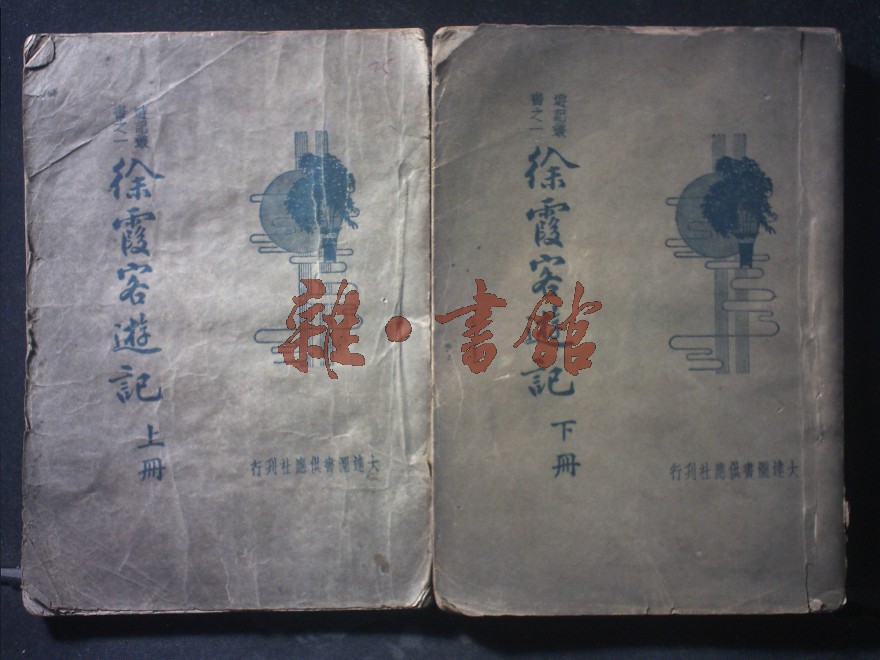 遊記叢
書之一
徐霞客遊記
上冊
大達圖書供應社刊行
遊記叢
書之一
徐霞客遊記
下冊
大達圖書供應社刊行
雜·書館